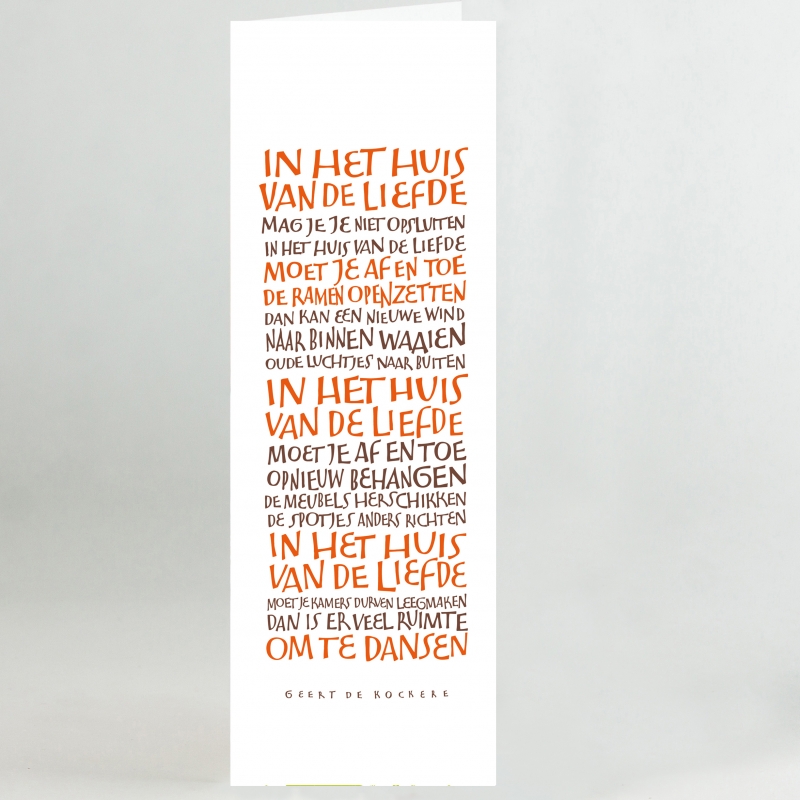 IN HET HUIS
VAN DE LIEFDE
MAG JE JE NIET OPSLUITEN
IN HET HUIS VAN DE LIEFDE
MOET JE AF EN TOE
DE RAMEN OPENZETTEN
DAN KAN EEN NIEUWE WIND
NAAR BINNEN WAAIEN
OUDE LUCHTJES NAAR BUITEN
IN HET HUIS
VAN DE LIEFDE
MOET JE AF EN TOE
OPNIEUW BEHANGEN
DE MEUBELS HERSCHIKKEN
DE SPOTJES ANDERS RICHTEN
IN HET HUIS
VAN DE LIEFDE
MOET JE KAMERS DURVEN LEEGMAKEN
DAN IS ER VEEL RUIMTE
OM TE DANSEN
GEERT DE KOCKERE